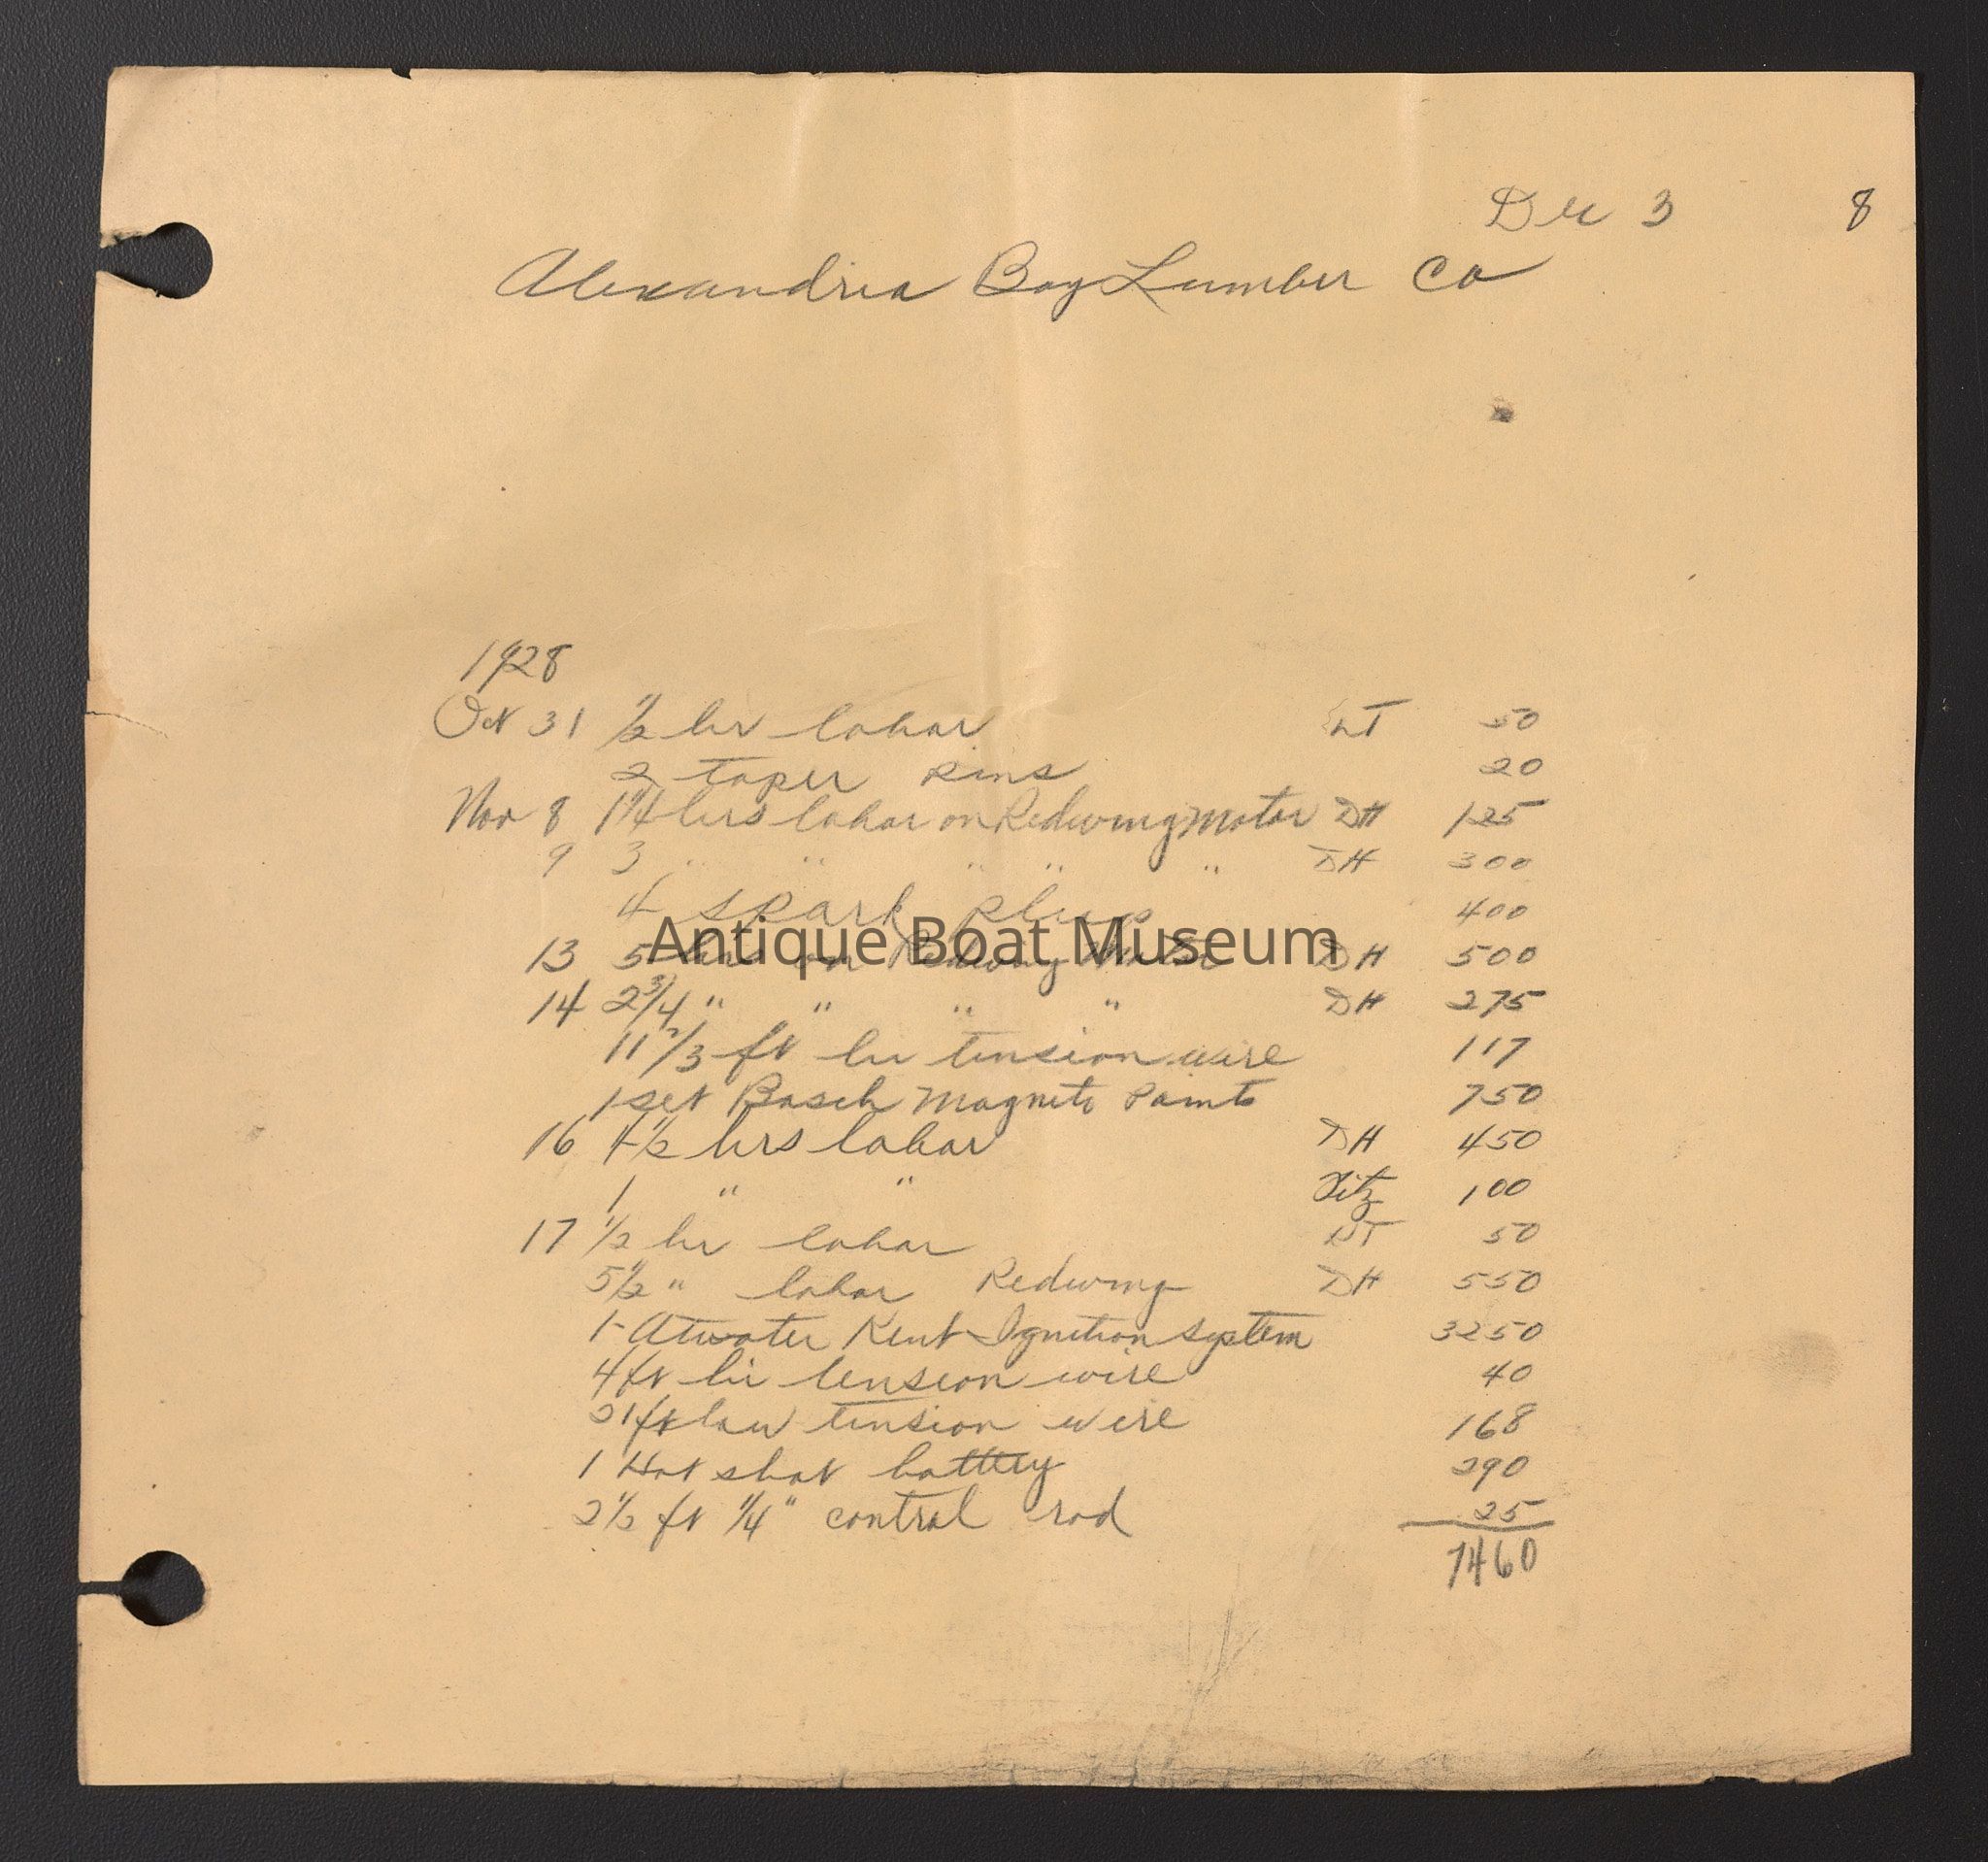 Dec 3 8
Alexandria Bay Lumber Co
1928
Oct 31 1/2 hr labor 50
2 taper pins 20
Nov 8 1 1/4 hrs labor on Redwing Motor DH 125
9 3 " " " " " DH 300
4 spark plugs 400
Antique Boat Museum
13 5 hrs on Redwing Motor DH 500
14 2 3/4 " " " " DH 275
11 2/3 ft hi tension wire 117
1 set Bosch Magneto Points 750
16 4 1/2 hrs labor DH 450
1 " " Fitz 100
17 1/2 hr labor 50
5 1/2 " labor Redwing DH 550
1 - Atwater Kent Ignition System 3250
4 ft hi tension wire 40
21 ft low tension wire 168
1 Hot shot battery 290
2 1/2 ft 1/4" control rod 25
7460